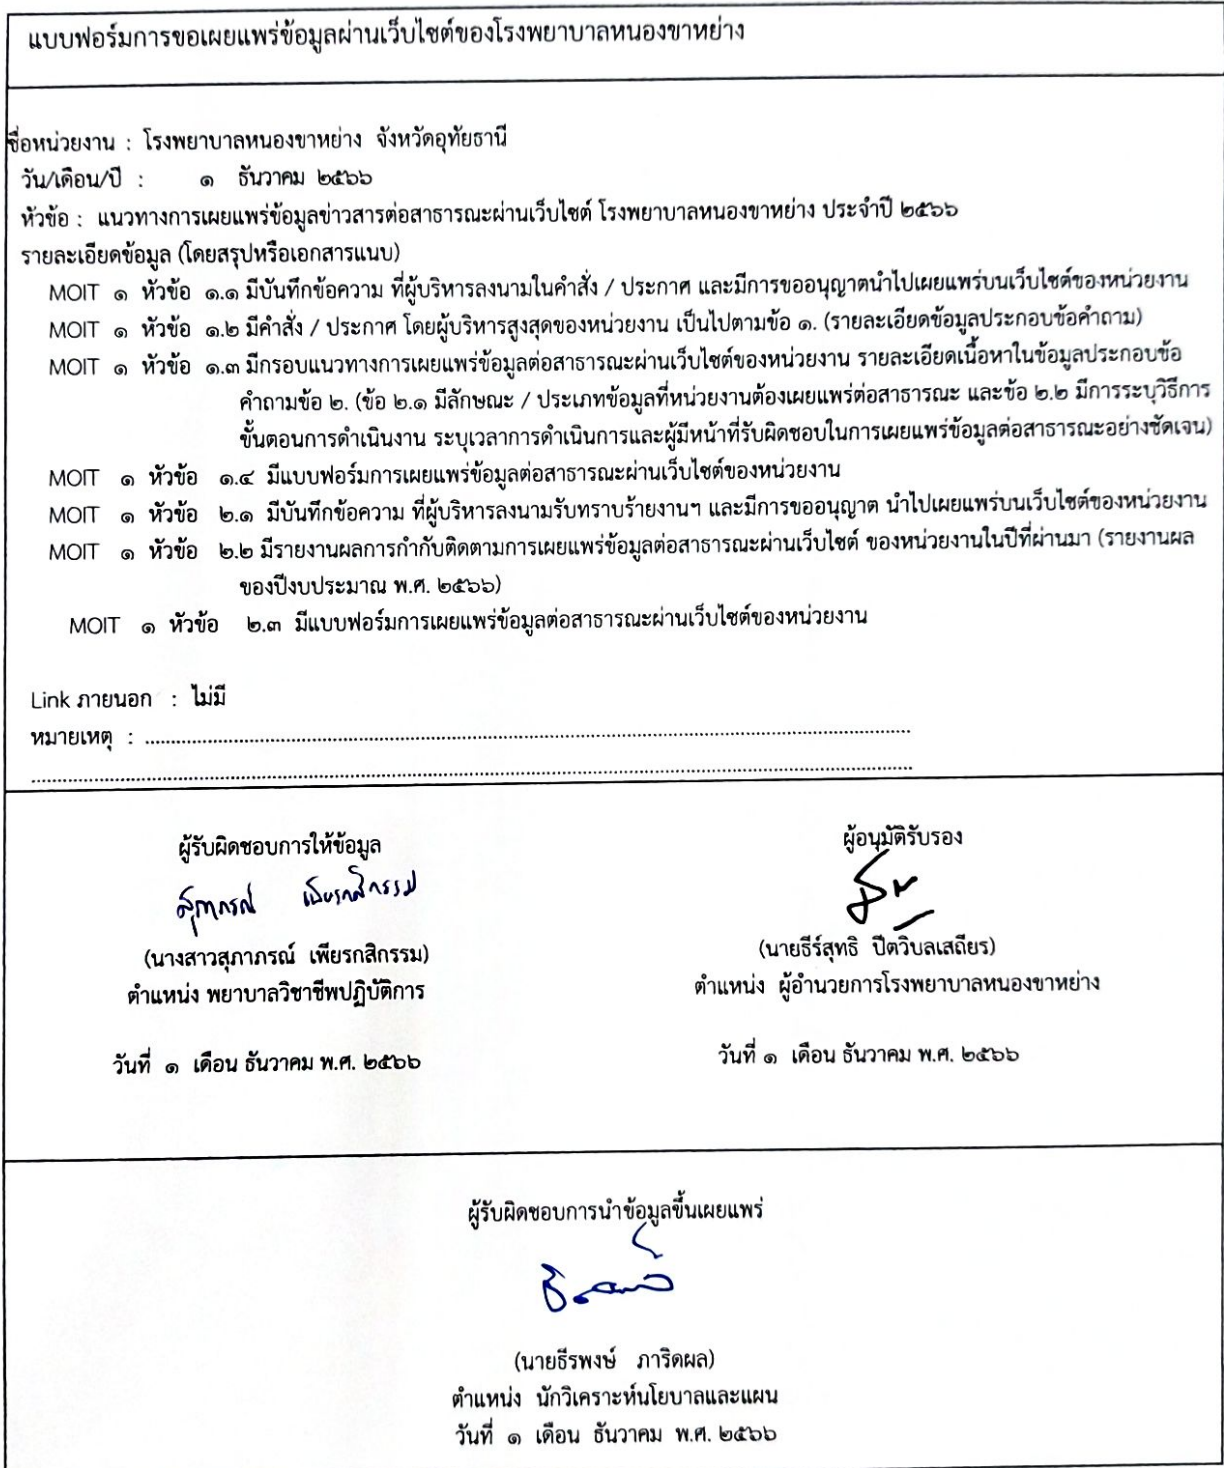 แบบฟอร์มการขอเผยแพร่ข้อมูลผ่านเว็บไซต์ของโรงพยาบาลหนองขาหย่าง
ชื่อหน่วยงาน : โรงพยาบาลหนองขาหย่าง จังหวัดอุทัยธานี
วัน/เดือน/ปี : ๑ ธันวาคม ๒๕๖๖
หัวข้อ : แนวทางการเผยแพร่ข้อมูลข่าวสารต่อสาธารณะผ่านเว็บไซต์ โรงพยาบาลหนองขาหย่าง ประจำปี ๒๕๖๖
รายละเอียดข้อมูล (โดยสรุปหรือเอกสารแนบ)
MOIT ๑ หัวข้อ ๑.๑ มีบันทึกข้อความ ที่ผู้บริหารลงนามในคำสั่ง / ประกาศ และมีการขออนุญาตนำไปเผยแพร่บนเว็บไซต์ของหน่วยงาน
MOIT ๑ หัวข้อ ๑.๒ มีคำสั่ง / ประกาศ โดยผู้บริหารสูงสุดของหน่วยงาน เป็นไปตามข้อ ๑. (รายละเอียดข้อมูลประกอบข้อคำถาม)
MOIT ๑ หัวข้อ ๑.๓ มีกรอบแนวทางการเผยแพร่ข้อมูลต่อสาธารณะผ่านเว็บไซต์ของหน่วยงาน รายละเอียดเนื้อหาในข้อมูลประกอบข้อ
คำถามข้อ ๒. (ข้อ ๒.๑ มีลักษณะ / ประเภทข้อมูลที่หน่วยงานต้องเผยแพร่ต่อสาธารณะ และข้อ ๒.๒ มีการระบุวิธีการ
ขั้นตอนการดำเนินงาน ระบุเวลาการดำเนินการและผู้มีหน้าที่รับผิดชอบในการเผยแพร่ข้อมูลต่อสาธารณะอย่างชัดเจน)
MOIT ๑ หัวข้อ ๑.๔ มีแบบฟอร์มการเผยแพร่ข้อมูลต่อสาธารณะผ่านเว็บไซต์ของหน่วยงาน
MOIT ๑ หัวข้อ ๒.๑ มีบันทึกข้อความ ที่ผู้บริหารลงนามรับทราบร้ายงานฯ และมีการขออนุญาต นำไปเผยแพร่บนเว็บไซต์ของหน่วยงาน
MOIT ๑ หัวข้อ ๒.๒ มีรายงานผลการกำกับติดตามการเผยแพร่ข้อมูลต่อสาธารณะผ่านเว็บไซต์ ของหน่วยงานในปีที่ผ่านมา (รายงานผล
ของปีงบประมาณ พ.ศ. ๒๕๖๖)
MOIT ๑ หัวข้อ ๒.๓ มีแบบฟอร์มการเผยแพร่ข้อมูลต่อสาธารณะผ่านเว็บไซต์ของหน่วยงาน
Link ภายนอก : ไม่มี
หมายเหตุ : ....................
....................
ผู้รับผิดชอบการให้ข้อมูล
สุภาภรณ์ เพียรกสิกรรม
(นางสาวสุภาภรณ์ เพียรกสิกรรม)
ตำแหน่ง พยาบาลวิชาชีพปฏิบัติการ
วันที่ ๑ เดือน ธันวาคม พ.ศ. ๒๕๖๖
ผู้อนุมัติรับรอง
(นายธีร์สุทธิ ปีตวิบลเสถียร)
ตำแหน่ง ผู้อำนวยการโรงพยาบาลหนองขาหย่าง
วันที่ ๑ เดือน ธันวาคม พ.ศ. ๒๕๖๖
ผู้รับผิดชอบการนำข้อมูลขึ้นเผยแพร่
(นายธีรพงษ์ ภาริดผล)
ตำแหน่ง นักวิเคราะห์นโยบาลและแผน
วันที่ ๑ เดือน ธันวาคม พ.ศ. ๒๕๖๖